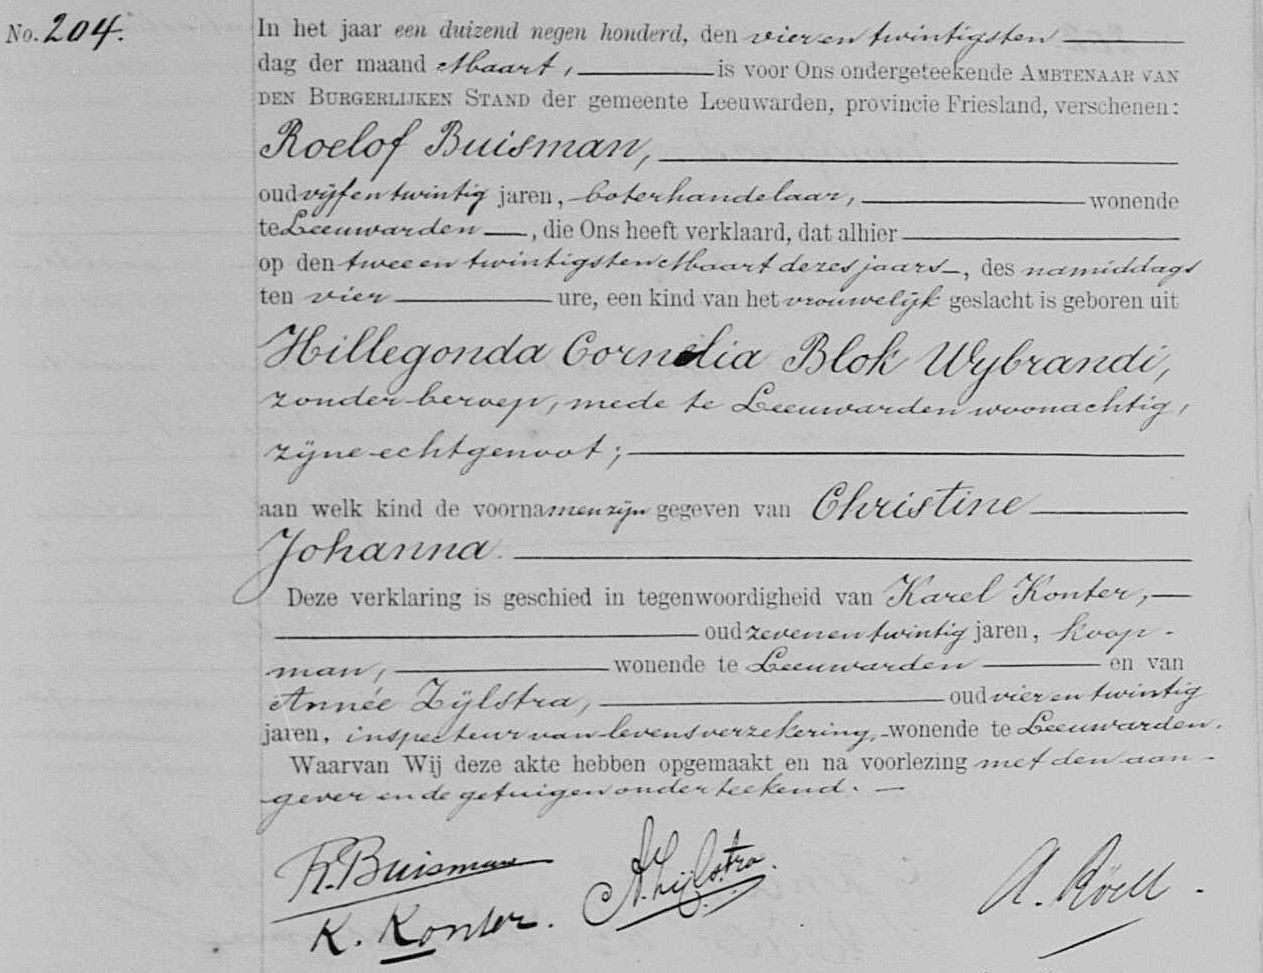 No. 204.
In het jaar een duizend negen honderd, den vier en twintigsten
dag der maand Maart, is voor Ons ondergeteekende AMBTENAAR VAN
DEN BURGERLIJKEN STAND der gemeente Leeuwarden, provincie Friesland, verschenen:
Roelof Buisman,
oud vijf en twintig jaren, boterhandelaar, wonende
te Leeuwarden, die Ons heeft verklaard, dat alhier
op den twee en twintigsten Maart dezes jaars, des namiddags
ten vier ure, een kind van het vrouwelijk geslacht is geboren uit
Hillegonda Cornelia Blok Wybrandi,
zonder beroep, mede te Leeuwarden woonachtig,
zijne echtgenoot;
aan welk kind de voornamen zijn gegeven van Christine
Johanna.
Deze verklaring is geschied in tegenwoordigheid van Karel Konter,
oud zeven en twintig jaren, koop-
man, wonende te Leeuwarden en van
Année Zijlstra, oud vier en twintig
jaren, inspecteur van levensverzekering, wonende te Leeuwarden.
Waarvan Wij deze akte hebben opgemaakt en na voorlezing met den aan-
gever en de getuigen onderteekend.
R. Buisman
A. Zijlstra.
A. Röell.
K. Konter.